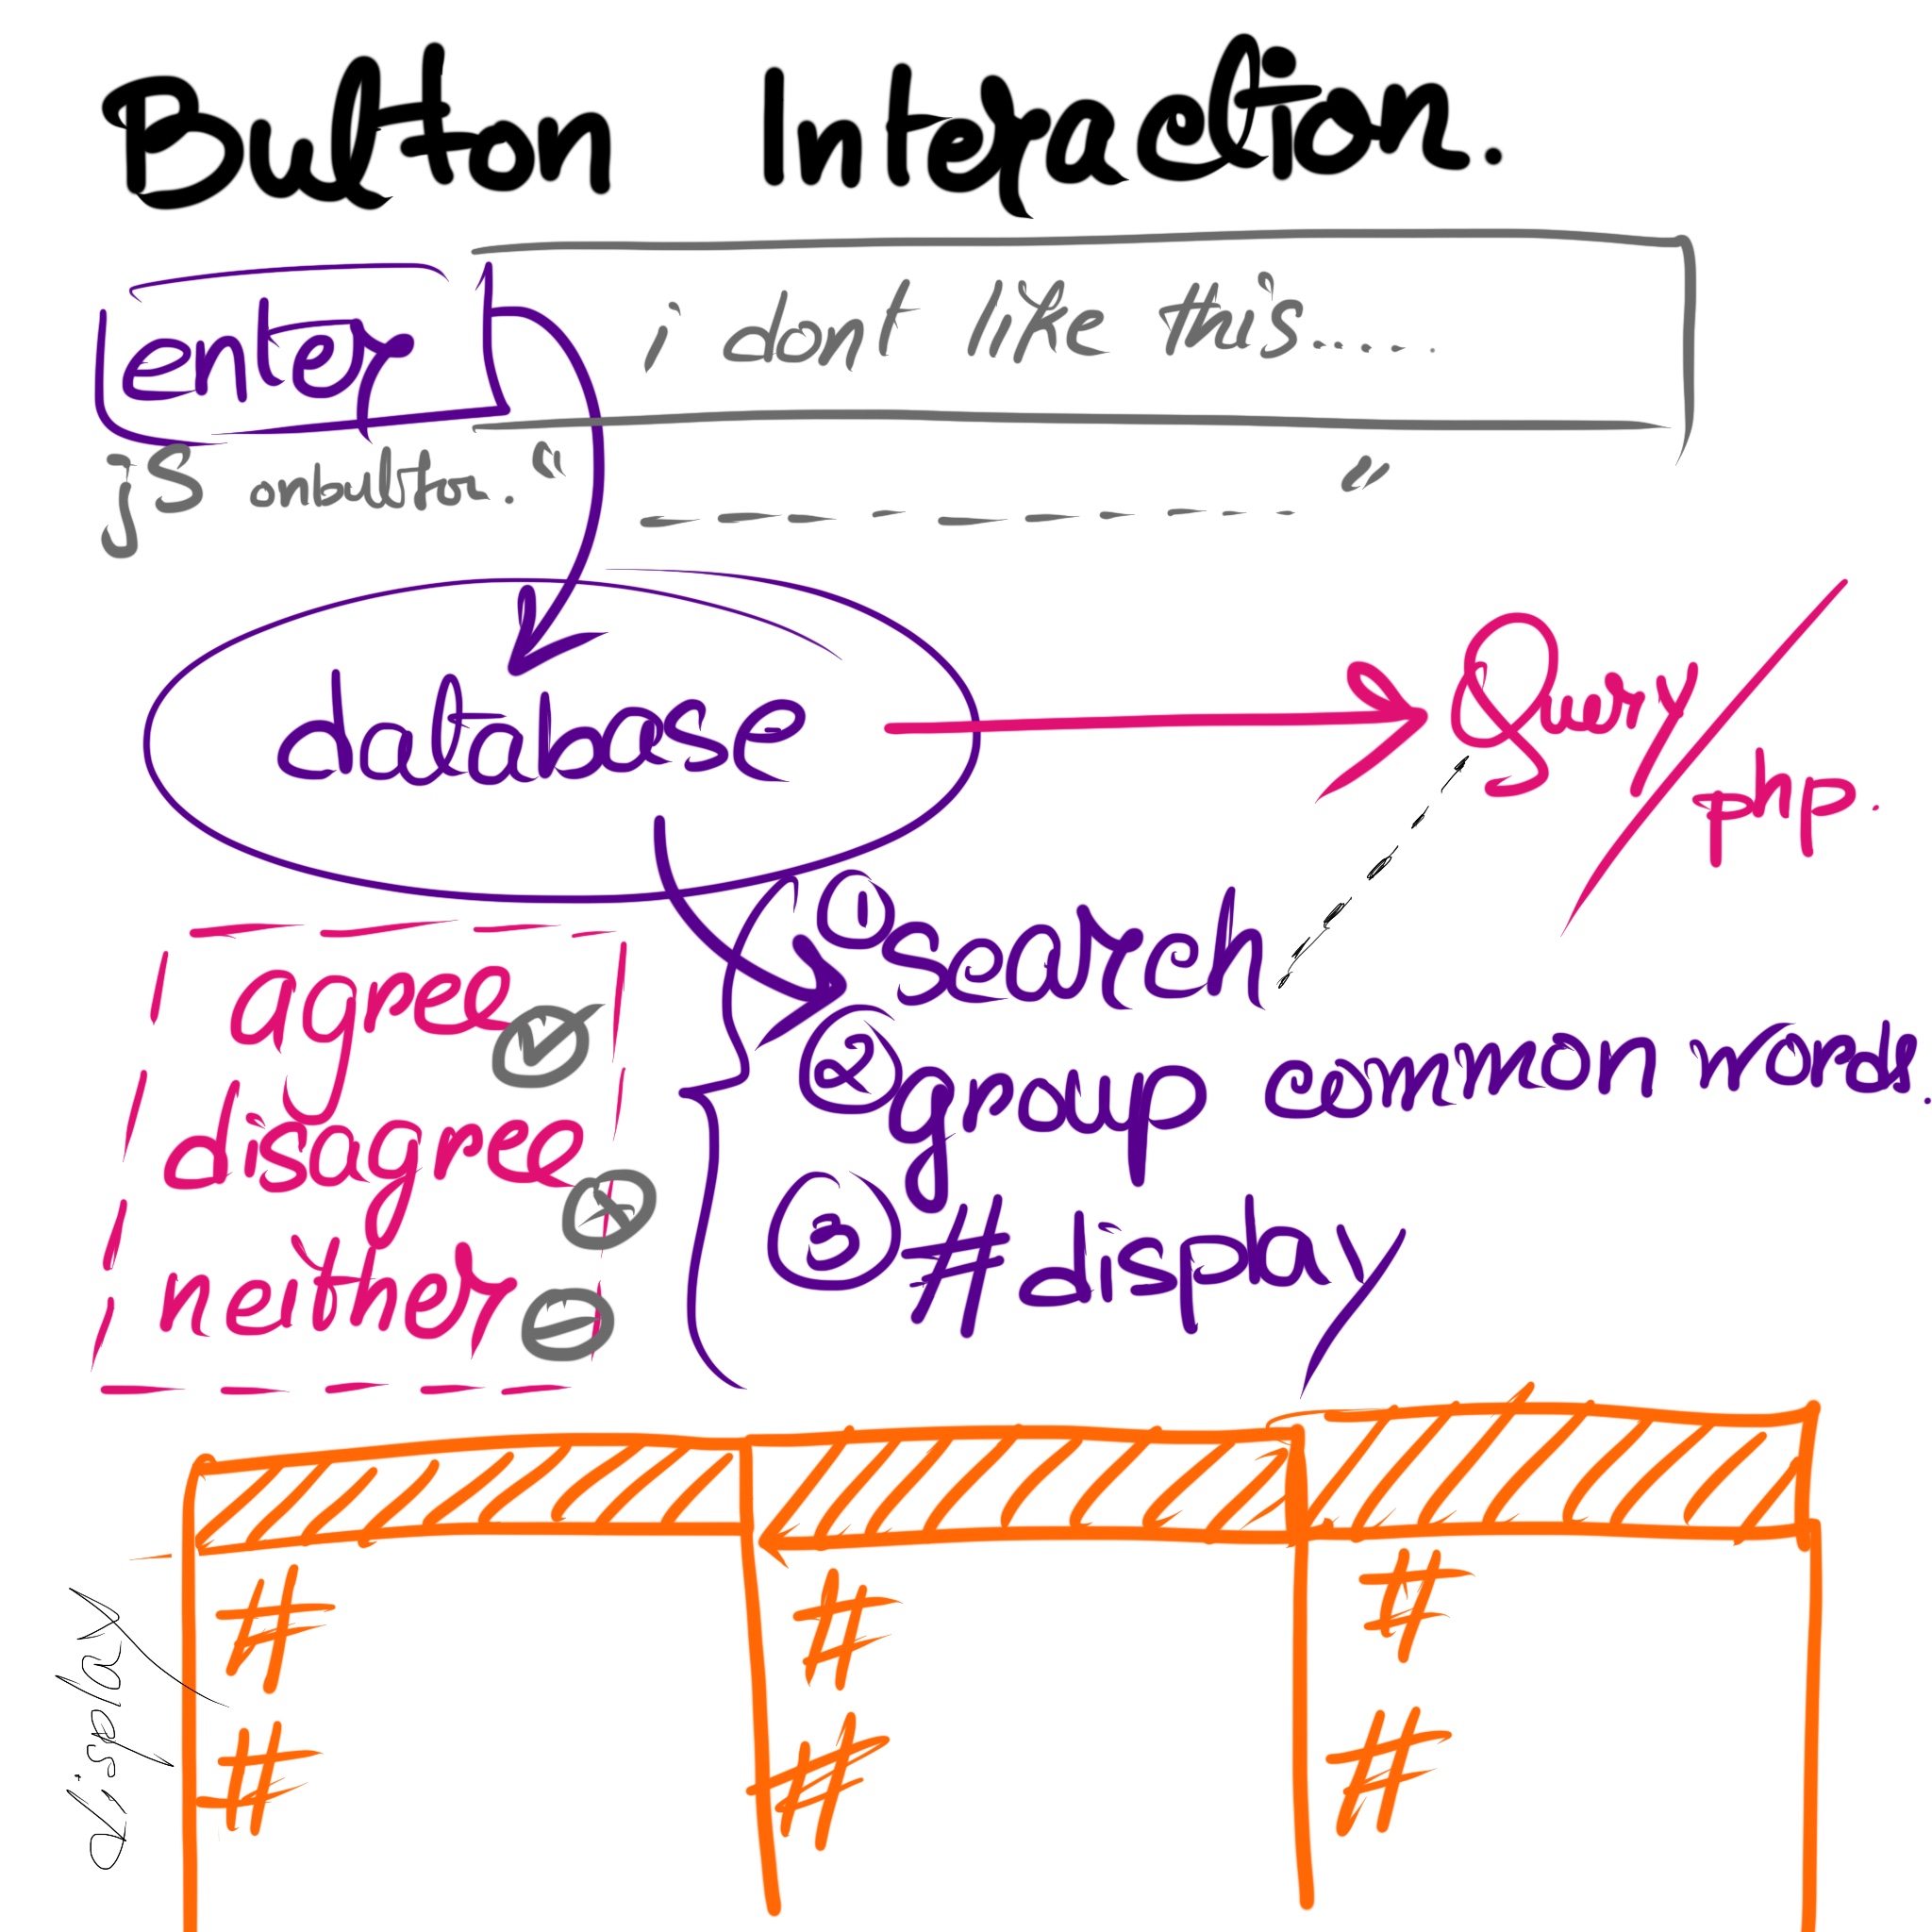 Button Interaction.
enter
i dont like this......
js onbutton. " - - - - - - - - - "
database
Query/php.
① search
② group common words.
③ # display
agree
disagree
neither
display
# # #
# # #